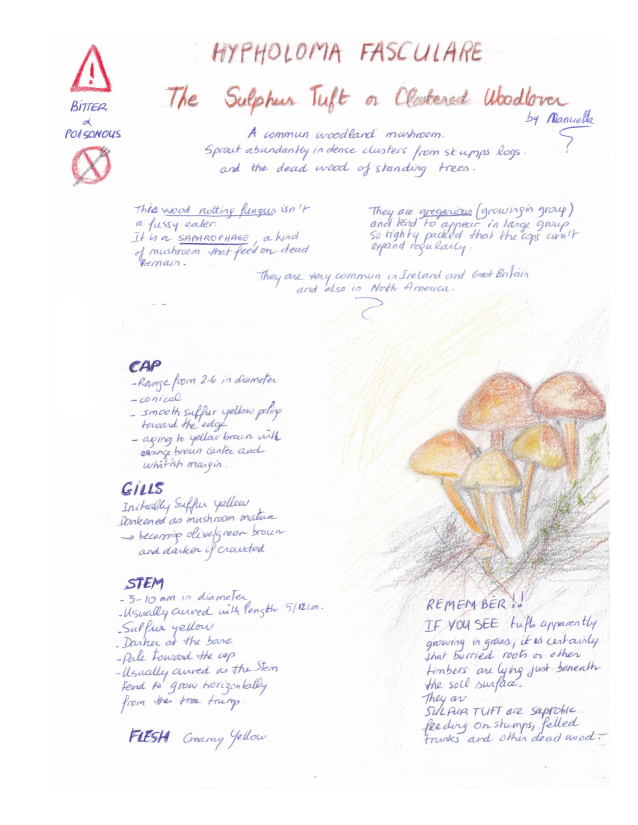 HYPHOLOMA FASCULARE
The Sulphur Tuft or Clustered Woodlover
by Manuella
BITTER
&
POISONOUS
A commun woodland mushroom.
Sprout abundantly in dense clusters from stumps logs.
and the dead wood of standing trees.
This wood rotting fungus isn't
a fussy eater.
It is a SAPHROPHAGE, a kind
of mushroom that feed on dead
remain.
They are gregarious (growing in group)
and tend to appear in large group
so tighty packed that the caps can't
expand regularly.
They are very commun in Ireland and Great Britain
and also in North America.
CAP
- Range from 2-6 in diameter
- conical
- smooth sulfur yellow paling
toward the edge
- aging to yellow brown with
orange brown center and
whitish margin.
GILLS
Initially Sulfur yellow
Darkened as mushroom mature
→ becoming olive/green brown
and darker if crowded
STEM
- 5-10 mm in diameter
- Usually curved with length 5/12cm.
- Sulfur yellow
- Darker at the base
- Pale toward the cap
- Usually curved as the stem
tend to grow horizontally
from the tree trump.
FLESH Creamy Yellow
REMEMBER!!
IF YOU SEE tufts apparently
growing in grass, it is certainly
that burried roots or other
timbers are lying just beneath
the soil surface.
They are
SULFUR TUFT are saprobic
feeding on stumps, felled
trunks and other dead wood.